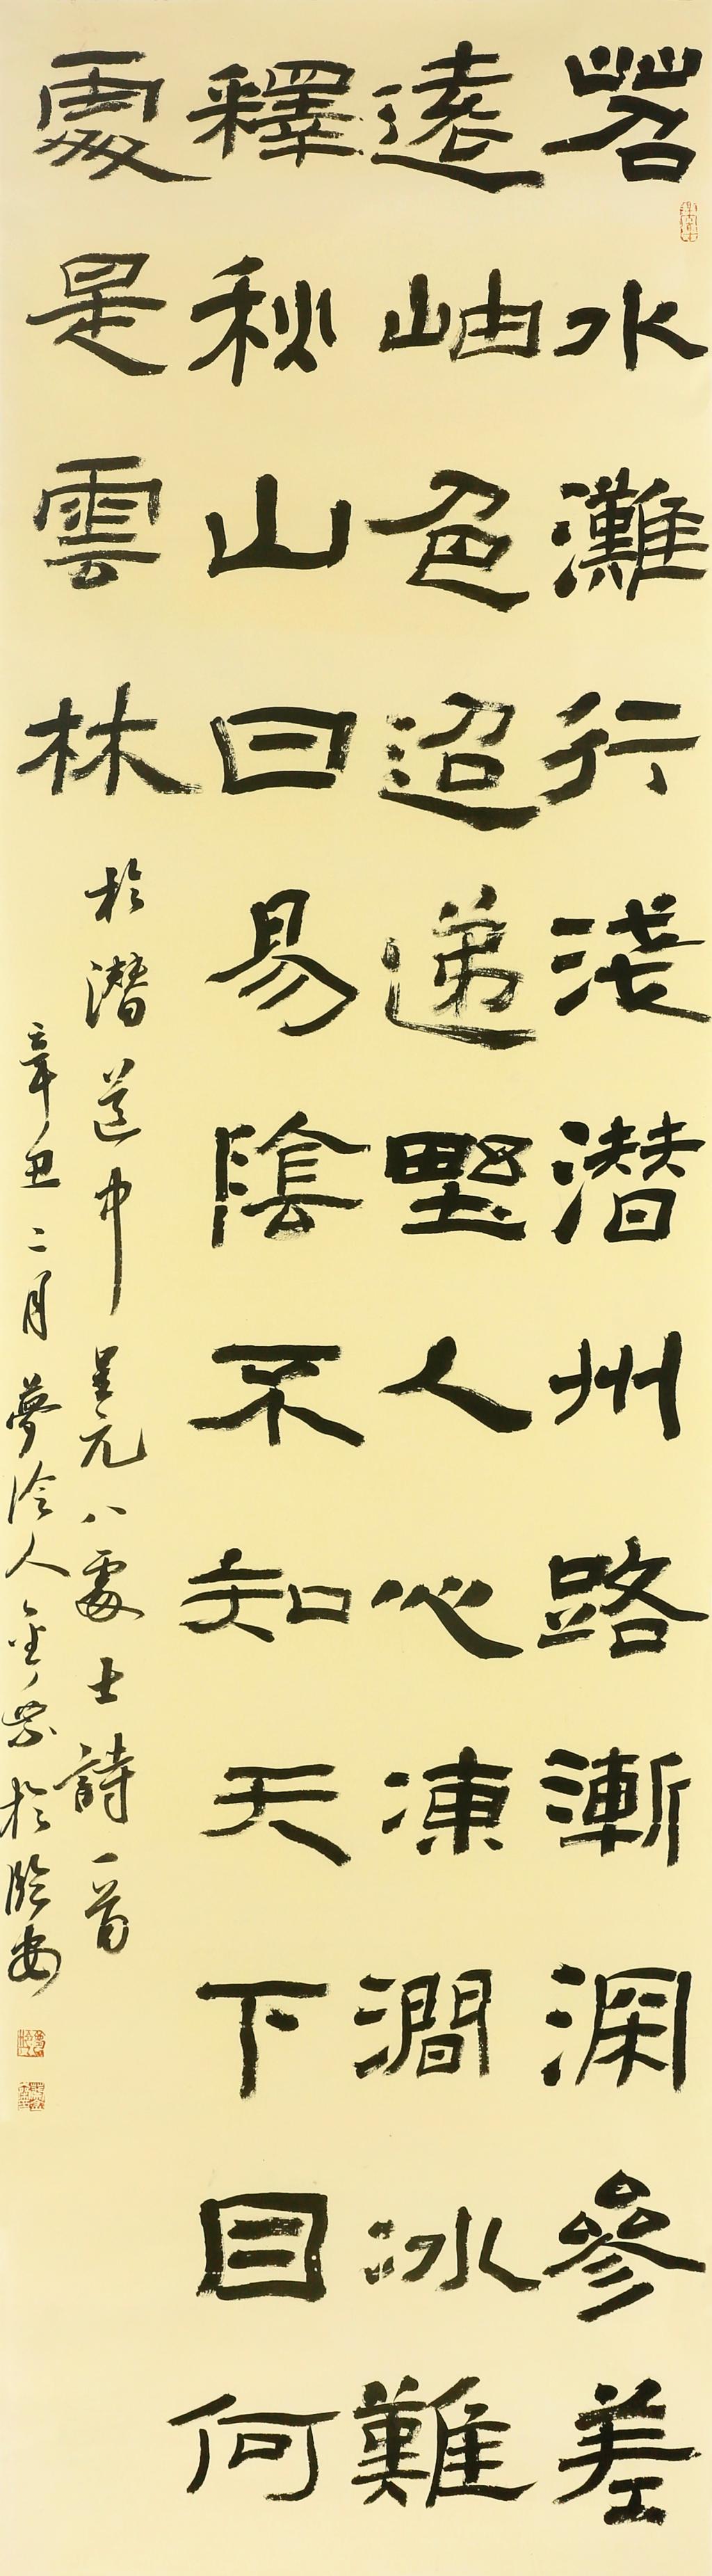 苕水灘行淺潛州路漸深參差
遠岫色迢遞野人心凍澗冰難
釋秋山日易陰不知天下目何
處是雲林
於潛道中呈元八處士詩一首
辛丑二月夢泠人金於臨安